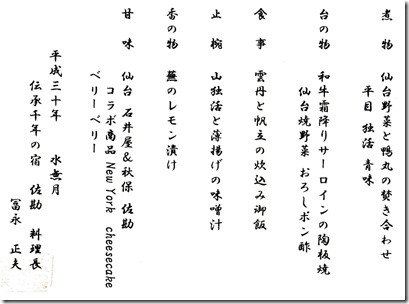 煮物 仙台野菜と鴨丸の焚き合わせ
平目 独活 青味
台の物 和牛霜降りサーロインの陶板焼
仙台焼野菜 おろしポン酢
食事 雲丹と帆立の炊込み御飯
止椀 山独活と薄揚げの味噌汁
香の物 蕪のレモン漬け
甘味 仙台 石井屋&秋保 佐勘
コラボ商品 New York cheesecake
ベリーベリー
平成三十年 水無月
伝承千年の宿 佐勘 料理長
冨永 正夫